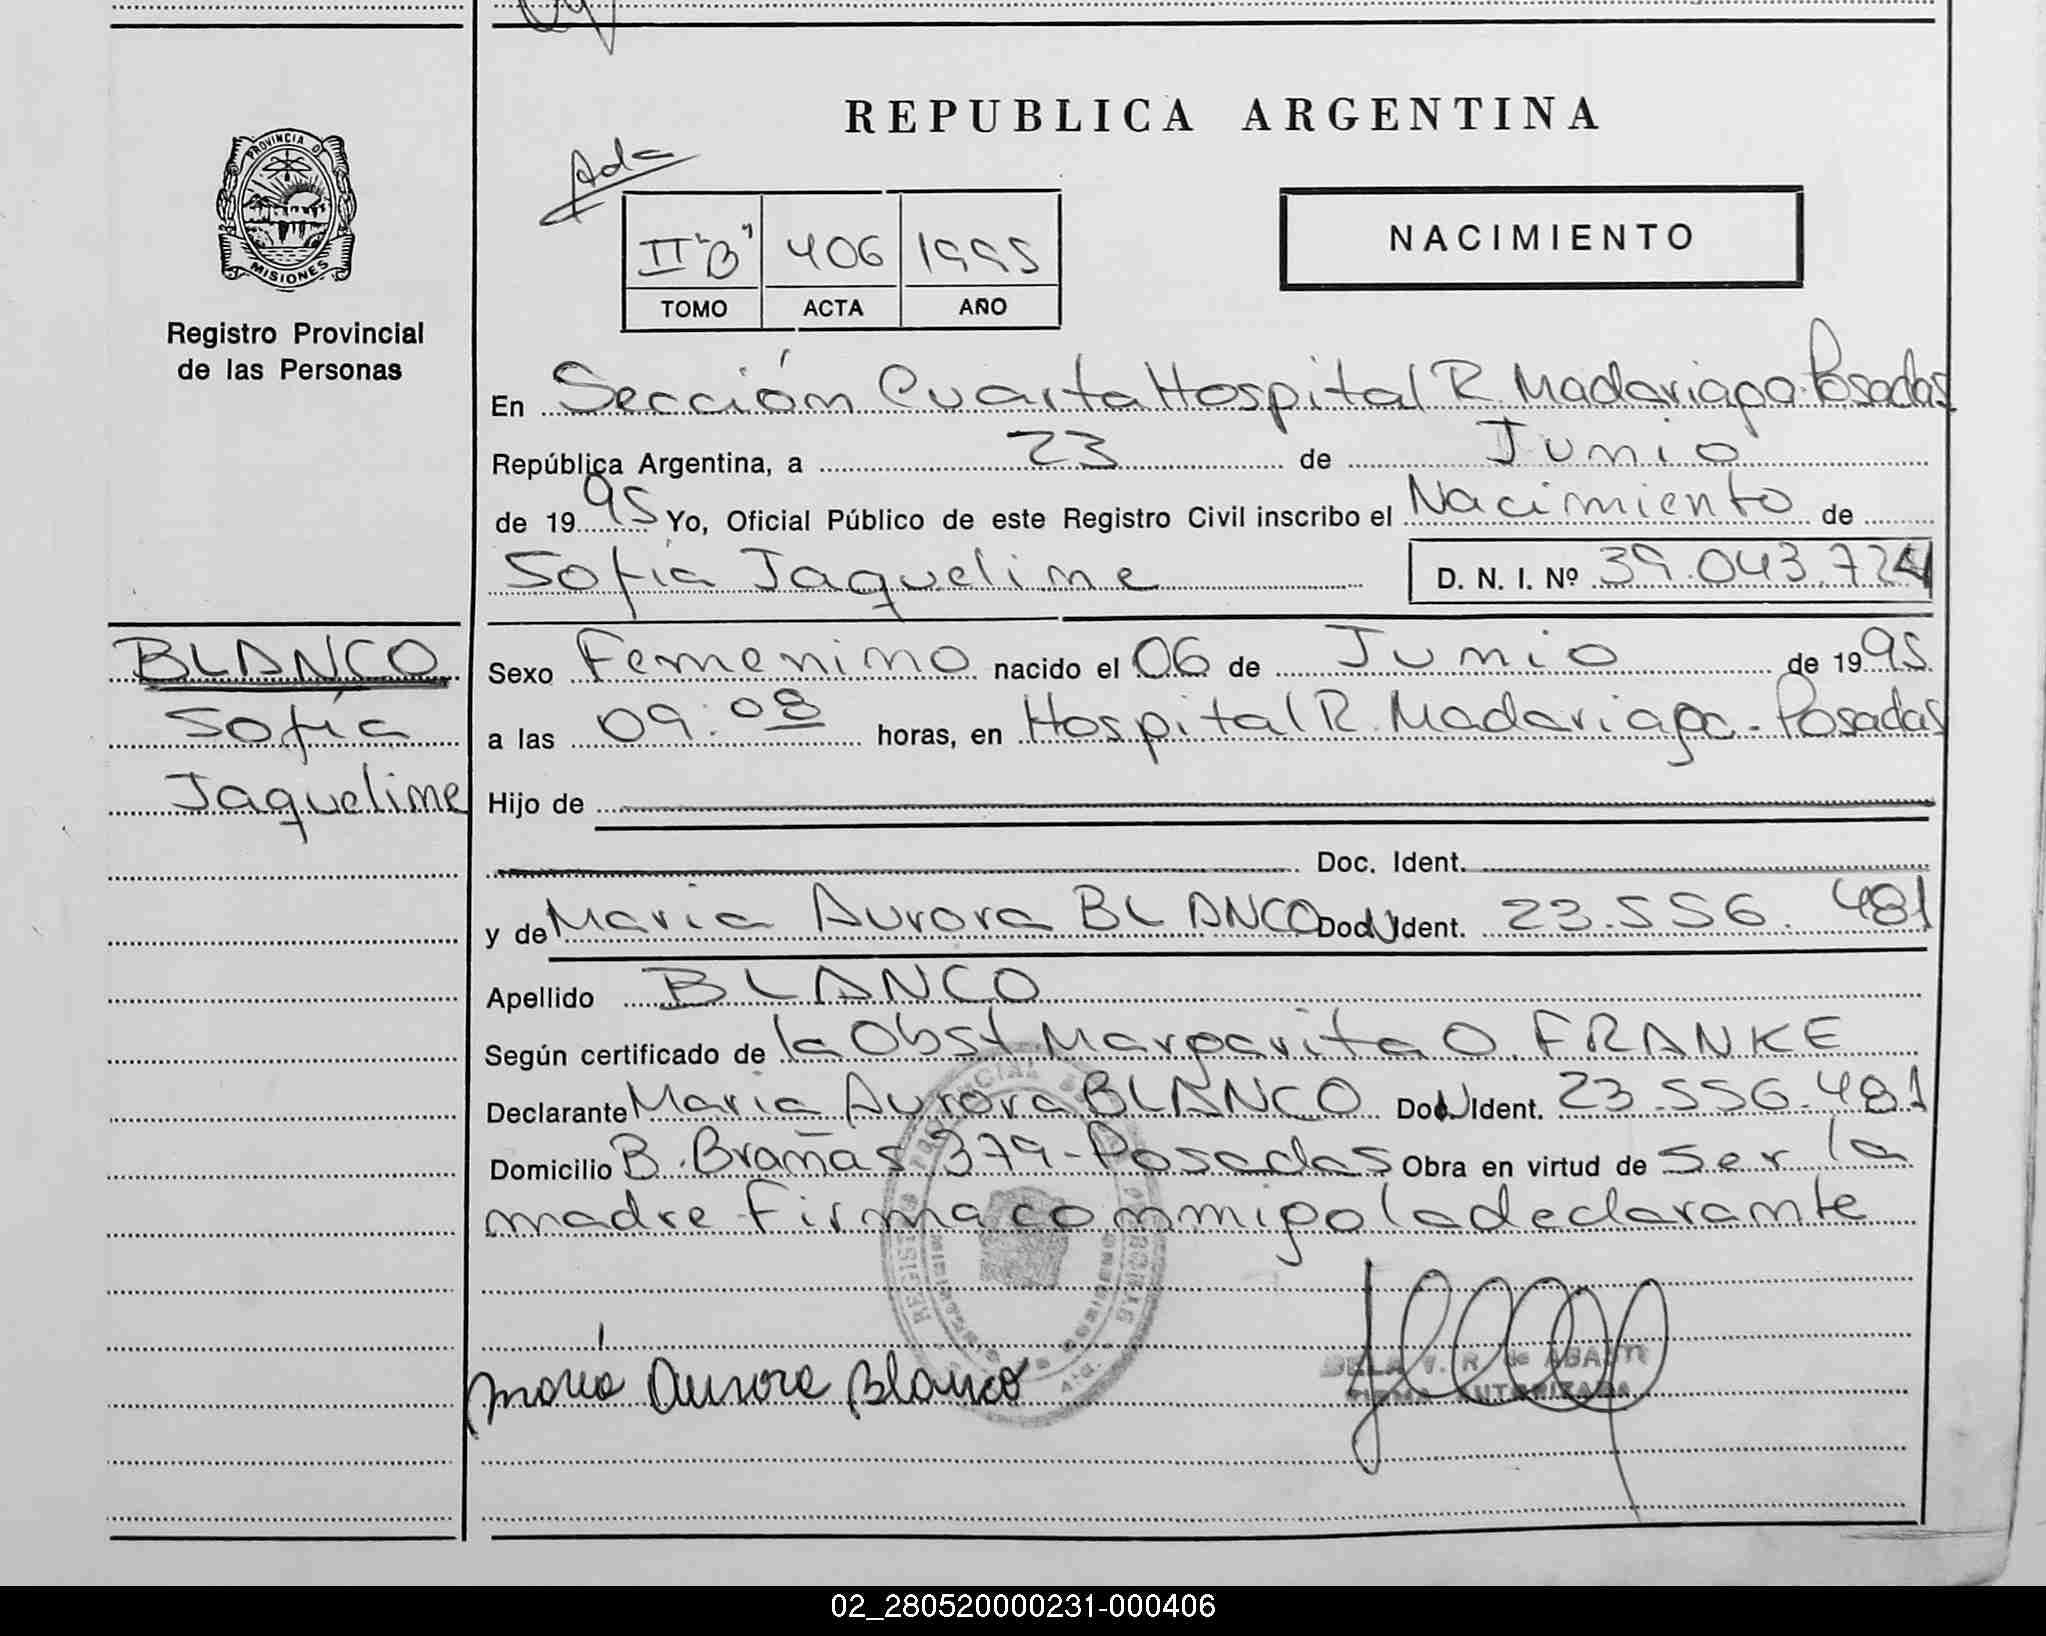 REPUBLICA ARGENTINA
PROVINCIA D
MISIONES
Registro Provincial
de las Personas
Ada
II "B" 406 1995
TOMO ACTA AÑO
NACIMIENTO
En Sección Cuarta Hospital R. Madariaga-Posadas
República Argentina, a 23 de Junio
de 1995 Yo, Oficial Público de este Registro Civil inscribo el Nacimiento de
Sofía Jaqueline D. N. I. Nº 39.043.724
BLANCO
Sofía
Jaqueline
Sexo Femenino nacido el 06 de Junio de 1995
a las 09:08 horas, en Hospital R. Madariaga - Posadas
Hijo de
Doc. Ident.
y de Maria Aurora BLANCO Doc Ident. 23.556.481
Apellido BLANCO
Según certificado de la Obst Margarita O. FRANKE
Declarante Maria Aurora BLANCO Doc Ident. 23.556.481
Domicilio B. Brañas 379-Posadas Obra en virtud de ser la
madre-Firma conmigo la declarante
María Aurora Blanco
FIRMA AUTORIZADA
02_280520000231-000406